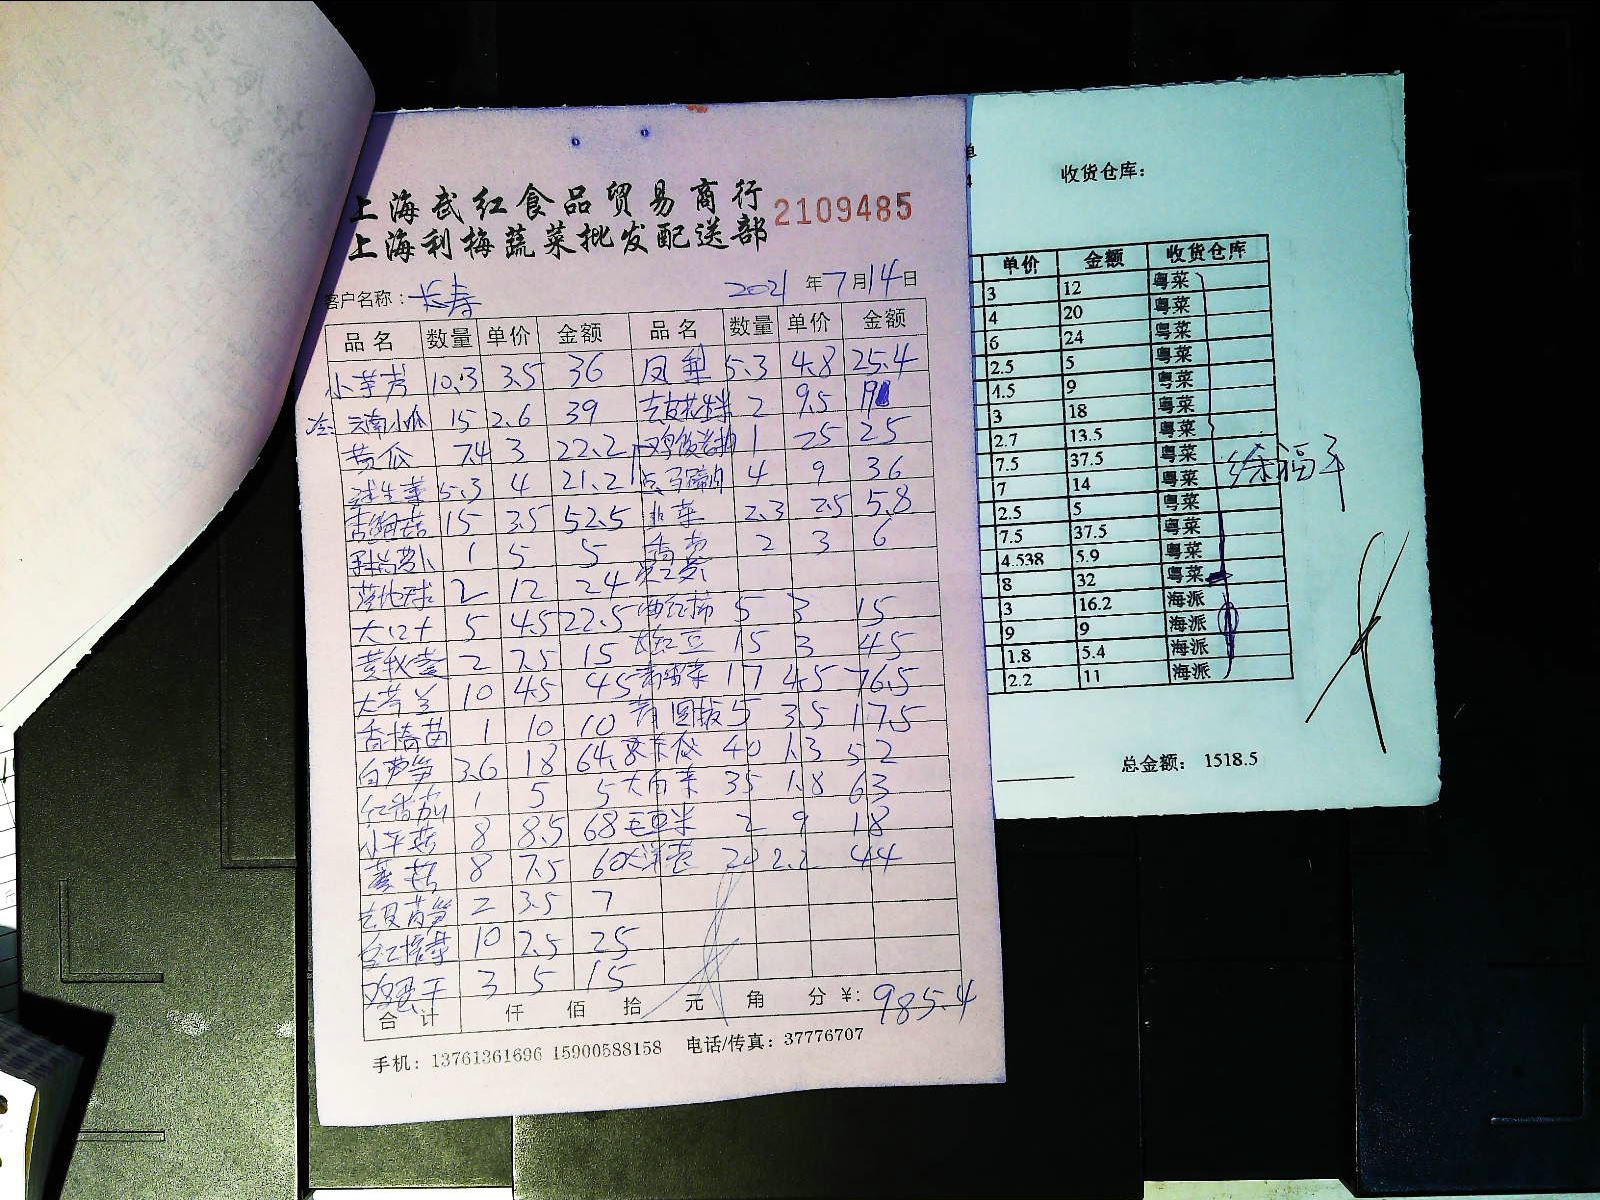 上海武红食品贸易商行
上海利梅蔬菜批发配送部
2109485
客户名称：长寿 2021 年 7 月 14 日
品名 数量 单价 金额 品名 数量 单价 金额
小芋艿 10.3 3.5 36 凤梨 5.3 4.8 25.4
云南小瓜 15 2.6 39 2 9.5 19
黄瓜 7.4 3 22.2 1 25 25
球生菜 5.3 4 21.2 马蹄肉 4 9 36
香菇 15 3.5 52.5 韭菜 2.3 2.5 5.8
1 5 5 2 3 6
2 12 24
大口十 5 4.5 22.5 西红柿 5 3 15
黄秋葵 2 7.5 15 长红豆 15 3 45
大芥兰 10 4.5 45 17 4.5 76.5
香椿苗 1 10 10 5 3.5 17.5
白芦笋 3.6 18 64.8 40 1.3 52
1 5 5 大白菜 35 1.8 63
小平菇 8 8.5 68 毛豆米 2 9 18
蘑菇 8 7.5 60 大洋葱 20 2.2 44
2 3.5 7
10 2.5 25
3 5 15
合计 仟 佰 拾 元 角 分 ¥: 985.4
手机：13761361696 15900588158 电话/传真：37776707
单
收货仓库：
单价 金额 收货仓库
3 12 粤菜
4 20 粤菜
6 24 粤菜
2.5 5 粤菜
4.5 9 粤菜
3 18 粤菜
2.7 13.5 粤菜
7.5 37.5 粤菜
7 14 粤菜
2.5 5 粤菜
7.5 37.5 粤菜
4.538 5.9 粤菜
8 32 粤菜
3 16.2 海派
9 9 海派
1.8 5.4 海派
2.2 11 海派
徐福平
总金额： 1518.5